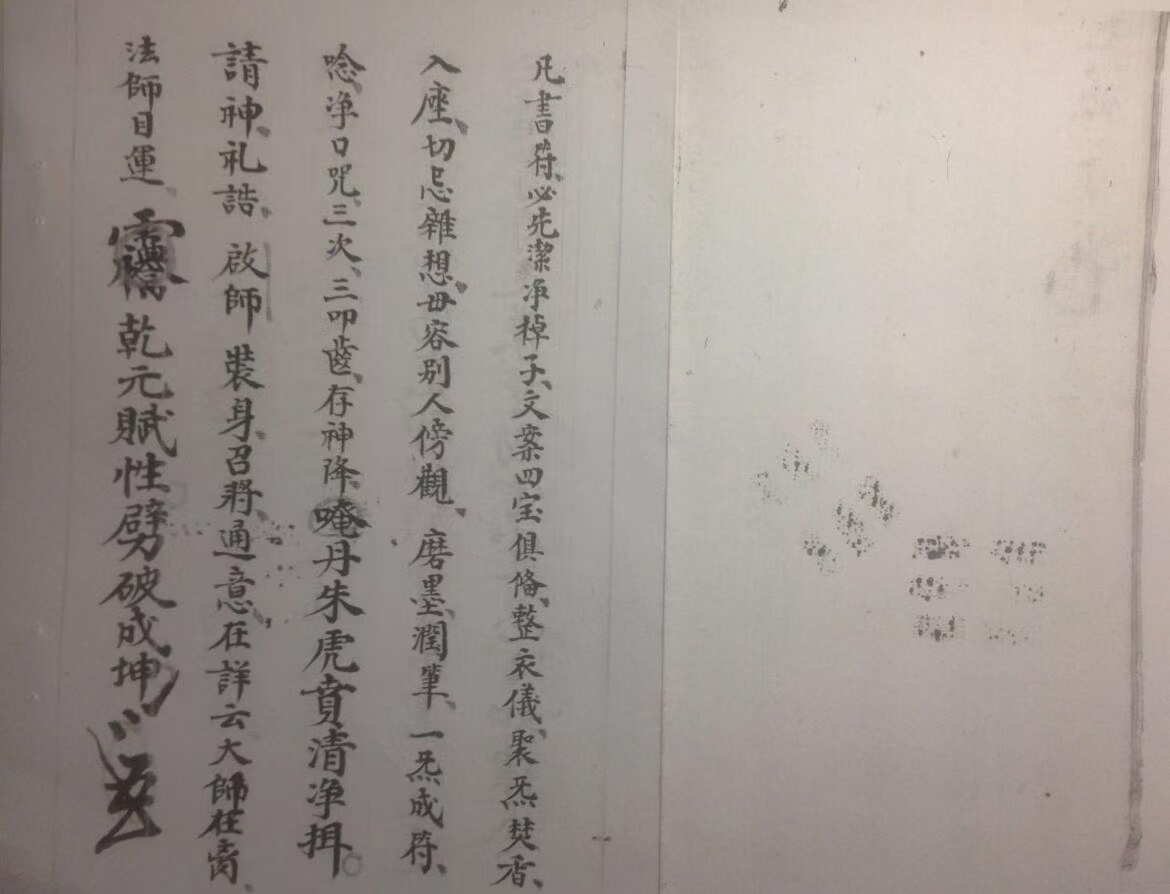 凡書符、必先潔净棹子、文案四宝俱俻、整衣儀、聚炁焚香、
入座、切忌雜想、毋容別人傍觀、磨墨、潤筆、一炁成符、
唸净口咒、三次、三叩齒、存神降、唵丹朱虎賁清净揖
請神、礼誥、啟師裝身、召將、通意、在詳云大師在
法師目運、乾元賦性劈破成坤